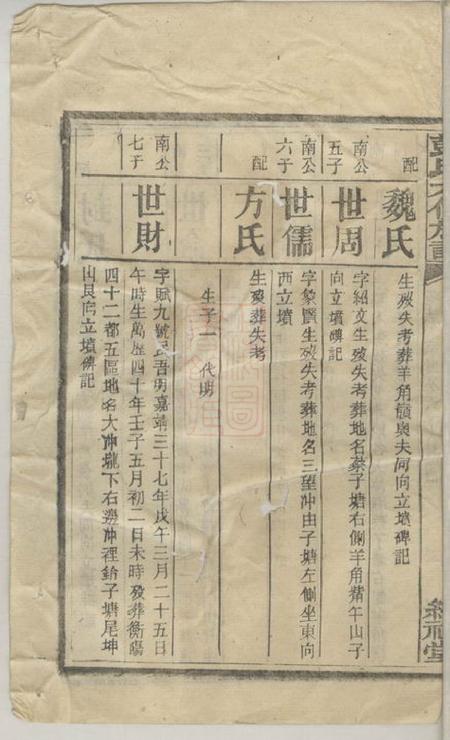 配
魏氏
生歿失考葬羊角嶺與夫同向立墳碑記
南公
五子
世周
字紹文生歿失考葬地名蔡子塘右側羊角觜午山子
向立墳碑記
南公
六子
世儒
字象賢生歿失考葬地名三望冲由子塘左側坐東向
西立墳
配
方氏
生歿葬失考
生子一 代明
南公
七子
世財
字賦九號民吾明嘉靖三十七年戊午三月二十五日
午時生萬歷四十年壬子五月初二日未時歿葬衡陽
四十二都五區地名大冲壠下右邊冲裡鉿子塘尾坤
山艮向立墳碑記